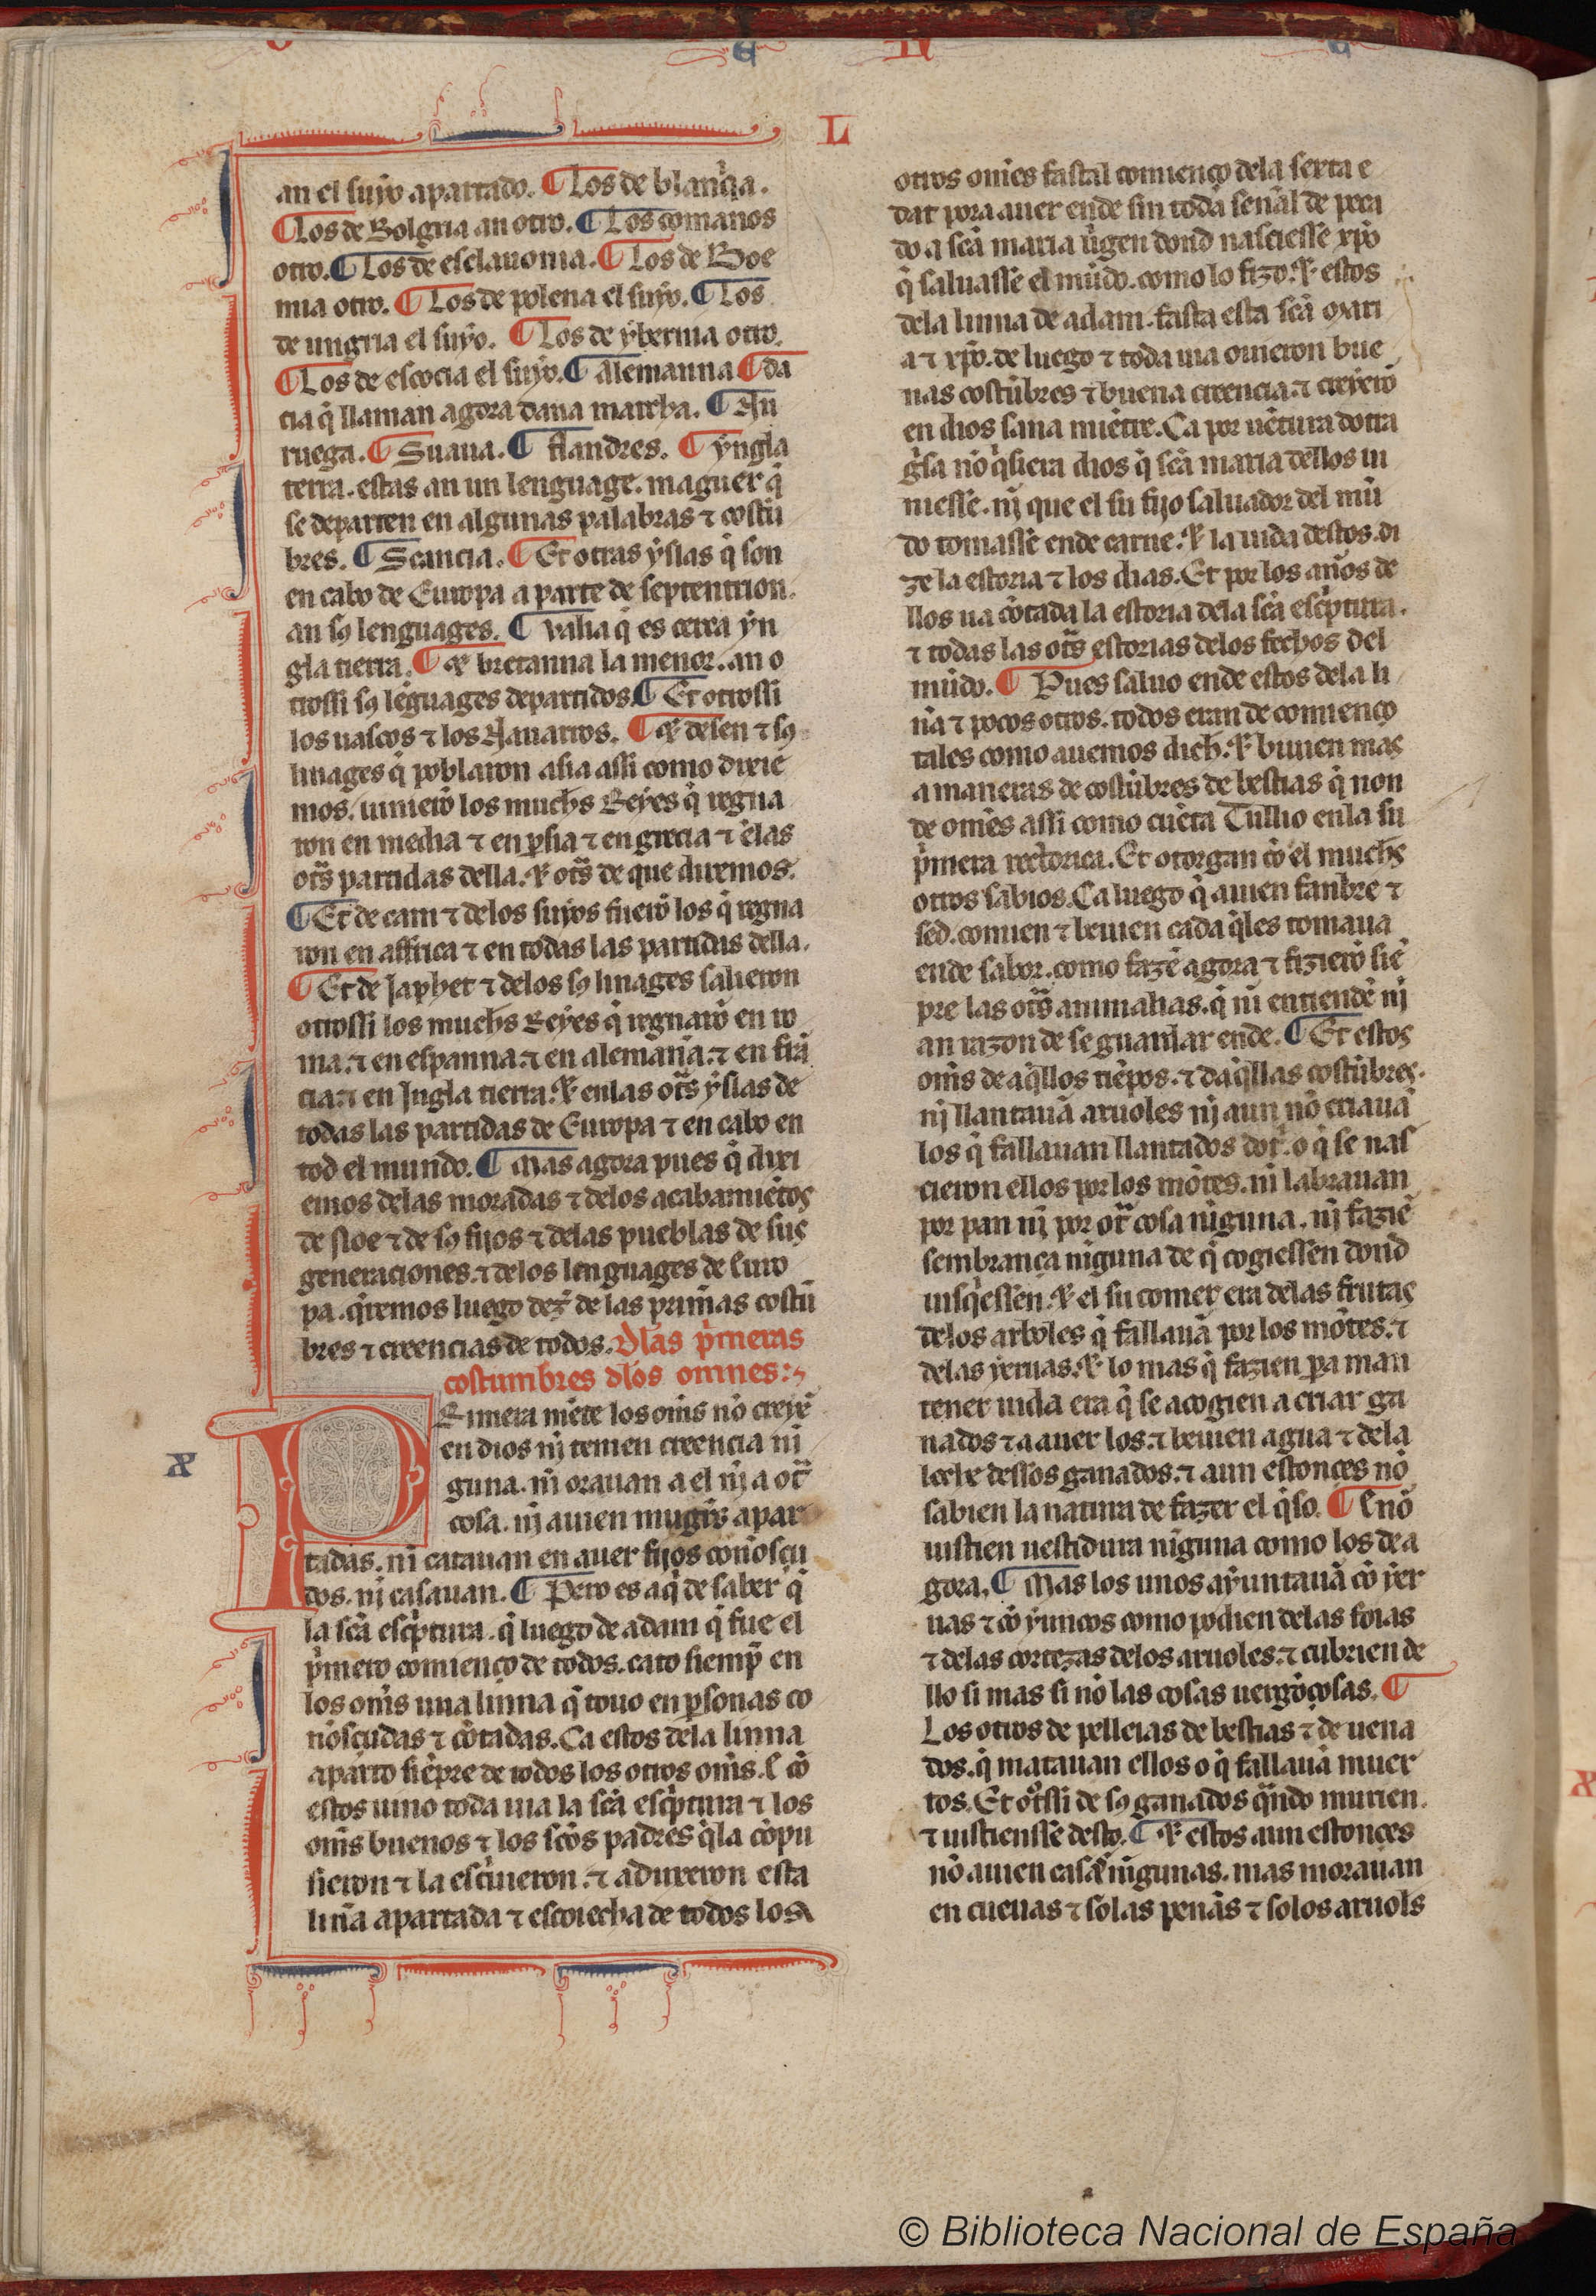 L
an el suyo apartado. ¶ Los de blanq̃ia.
¶ Los de Bolgria an otro. ¶ Los comanos
otro. ¶ Los de esclauonia. ¶ Los de Boe
mia otro. ¶ Los de polena el suyo. ¶ Los
de ungria el suyo. ¶ Los de ybernia otro.
¶ Los de escocia el suyo. ¶ Alemanna ¶ da
cia q̃ llaman agora dana marcha. ¶ Nu
ruega. ¶ Suaua. ¶ flandres. ¶ yngla
terra. estas an un lenguage. maguer q̃
se departen en algunas palabras ⁊ costũ
bres. ¶ Scancia. ¶ Et otras yslas q̃ son
en cabo de Europa a parte de septentrion.
an sꝯ lenguages. ¶ Valia q̃ es cerca yn
gla tierra. ¶ ⁊ bretanna la menor. an o
trossi sꝯ lẽguages departidos ¶ Et otrossi
los uascos ⁊ los Nauarros. ¶ ⁊ de sen ⁊ sꝯ
linages q̃ poblaron asia assi como dixie
mos. uinierõ los muchs Reyes q̃ regna
ron en media ⁊ en ꝑsia ⁊ en grecia ⁊ ẽlas
otr̃s partidas della. ⁊ otr̃s de que diremos.
¶ Et de cam ⁊ delos suyos fuerõ los q̃ regna
ron en affrica ⁊ en todas las partidas della.
¶ Et de Japhet ⁊ delos sꝯ linages salieron
otrossi los muchs Reyes q̃ regnarõ en ro
ma. ⁊ en espanna. ⁊ en alemana. ⁊ en frã
cia. ⁊ en Jngla tierra. ⁊ enlas otr̃s yslas de
todas las partidas de Europa ⁊ en cabo en
tod el mundo. ¶ Mas agora pues q̃ dixi
emos delas moradas ⁊ delos acabamiẽtos
de noe ⁊ de sꝯ fijos ⁊ delas pueblas de sus
generaciones. ⁊ delos lenguages de Euro
pa. q̃remos luego dez̃ de las prim̃as costũ
bres ⁊ creencias de todos. Dlas p̃meras
costumbres dlos omnes:
X
PRimera miẽte los om̃s nõ creyẽ
en dios nj tenien creencia ni
guna. nj orauan a el nj a otr̃
cosa. nj auien mugirs̃ apar
tadas. ni catauan en auer fijos coñoscu
dos. nj casauan. ¶ Pero es aq̃ de saber q̃
la scã esc̃ptura. q̃ luego de adam q̃ fue el
p̃mero comienço de todos. cato siemp̃ en
los om̃s una linna q̃ touo en ꝑsonas co
ñosçudas ⁊ cõtadas. Ca estos dela linna
aparto siẽpre de todos los otros om̃s. E cõ
estos uino toda uia la scã esc̃ptura ⁊ los
om̃s buenos ⁊ los scõs padres q̃la cõpu
sieron ⁊ la esc̃uieron. ⁊ aduxeron esta
liña apartada ⁊ escorecha de todos los
otros omẽs fastal comienço dela sexta e
dat pora auer ende sin toda señal de peca
do a scã maria ũgen dond nasciesse xp̃o
q̃ saluasse el mũdo. como lo fizo. ⁊ estos
dela linna de adam. fasta esta scã maʀi
a ⁊ xp̃o. de luego ⁊ toda uia ouieron bue
nas costũbres ⁊ buena creencia. ⁊ creyerõ
en dios sana miẽtre. Ca por uẽtura dotra
g̃sa nõ q̃siera dios q̃ scã maria dellos ui
niesse. nj que el su fijo saluador del mũ
do tomasse ende carne. ⁊ la uida destos. di
ze la estoria ⁊ los dias. Et por los años de
llos ua cõtada la estoria dela scã esc̃ptura.
⁊ todas las otr̃s estorias delos fechos del
mũdo. ¶ Pues saluo ende estos dela li
ña ⁊ pocos otros. todos eran de comienço
tales como auemos dich. ⁊ biuien mas
a maneras de costũbres de bestias q̃ non
de omẽs assi como cuẽta Tullio enla su
p̃mera rectorica. Et otorgan cõ el muchs
otros sabios. Ca luego q̃ auien fanbre ⁊
sed. comien ⁊ beuien cada q̃les tomaua
ende sabor. como fazẽ agora ⁊ fizierõ siẽ
pre las otr̃s animalias. q̃ ni entiendẽ nj
an razon de se guardar ende. ¶ Et estos
om̃s de aq̃llos tiẽpos. ⁊ daq̃llas costũbres.
nj llantauã aruoles nj aun nõ criauã
los q̃ fallauan llantados dotr̃. o q̃ se nas
cieron ellos por los mõtes. ni labrauan
por pan nj por otr̃ cosa niguna. nj faziẽ
sembrança niguna de q̃ cogiessen dond
uisq̃essen. ⁊ el su comer era delas frutas
delos arboles q̃ fallauã por los mõtes. ⁊
delas yeruas. ⁊ lo mas q̃ fazien ꝑa man
tener uida era q̃ se acogien a criar ga
nados ⁊ a auer los. ⁊ beuien agua ⁊ dela
leche dessos ganados. ⁊ aun estonces nõ
sabien la natura de fazer el q̃so. ¶ E nõ
uistien uestidura niguna como los de a
gora. ¶ Mas los unos ayuntauã cõ yer
uas ⁊ cõ yuncos como podien delas foias
⁊ delas cortezas delos aruoles. ⁊ cubrien de
llo si mas si nõ las cosas uergõçosas. ¶
Los otros de pelleias de bestias ⁊ de uena
dos. q̃ matauan ellos o q̃ fallauã muer
tos. Et otr̃ssi de sꝯ ganados q̃ndo murien.
⁊ uistiensse desto. ¶ ⁊ estos aun estonces
nõ auien casas nigunas. mas morauan
en cueuas ⁊ solas penãs ⁊ solos aruols
© Biblioteca Nacional de España